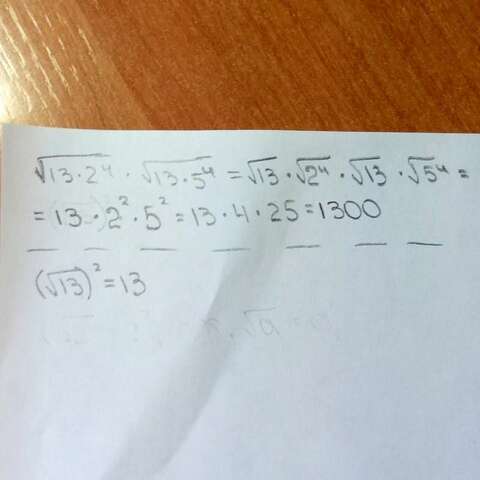 √13·2⁴ · √13·5⁴ = √13 · √2⁴ · √13 · √5⁴ =
= 13 · 2² · 5² = 13 · 4 · 25 = 1300
(√13)² = 13